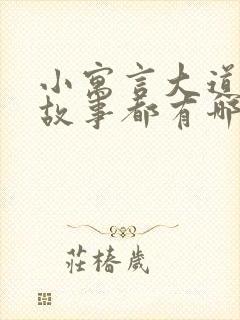 小寓言大道
故事都有哪
莊椿歲